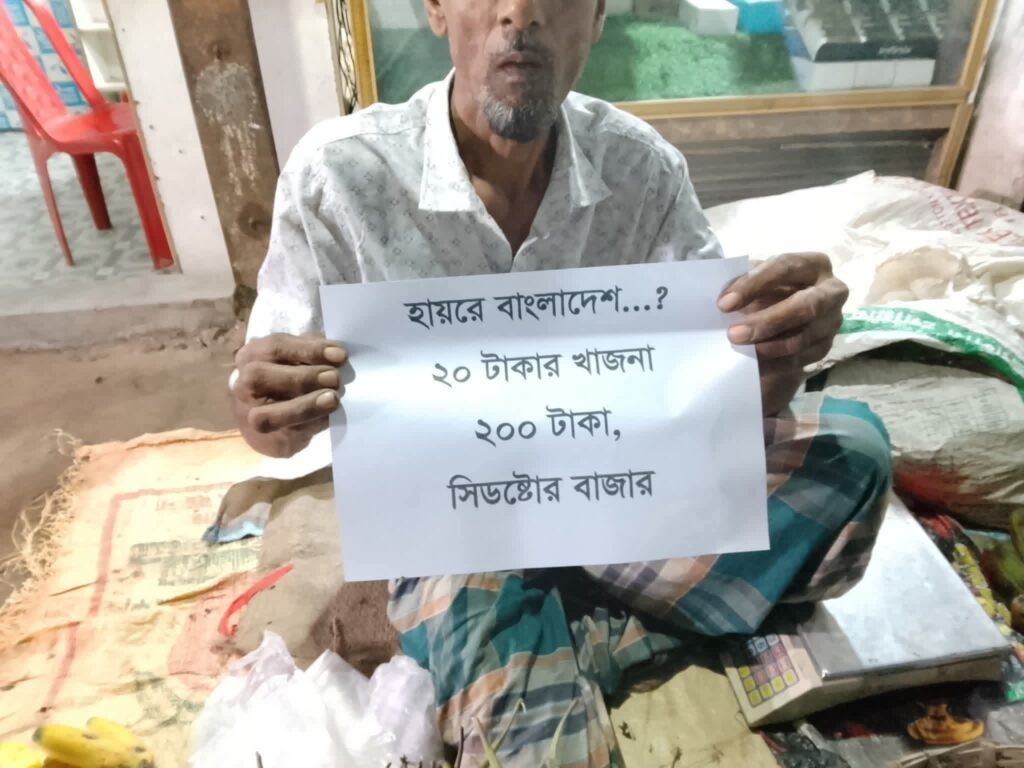 হায়রে বাংলাদেশ...?
২০ টাকার খাজনা
২০০ টাকা,
সিডষ্টোর বাজার
Infinix